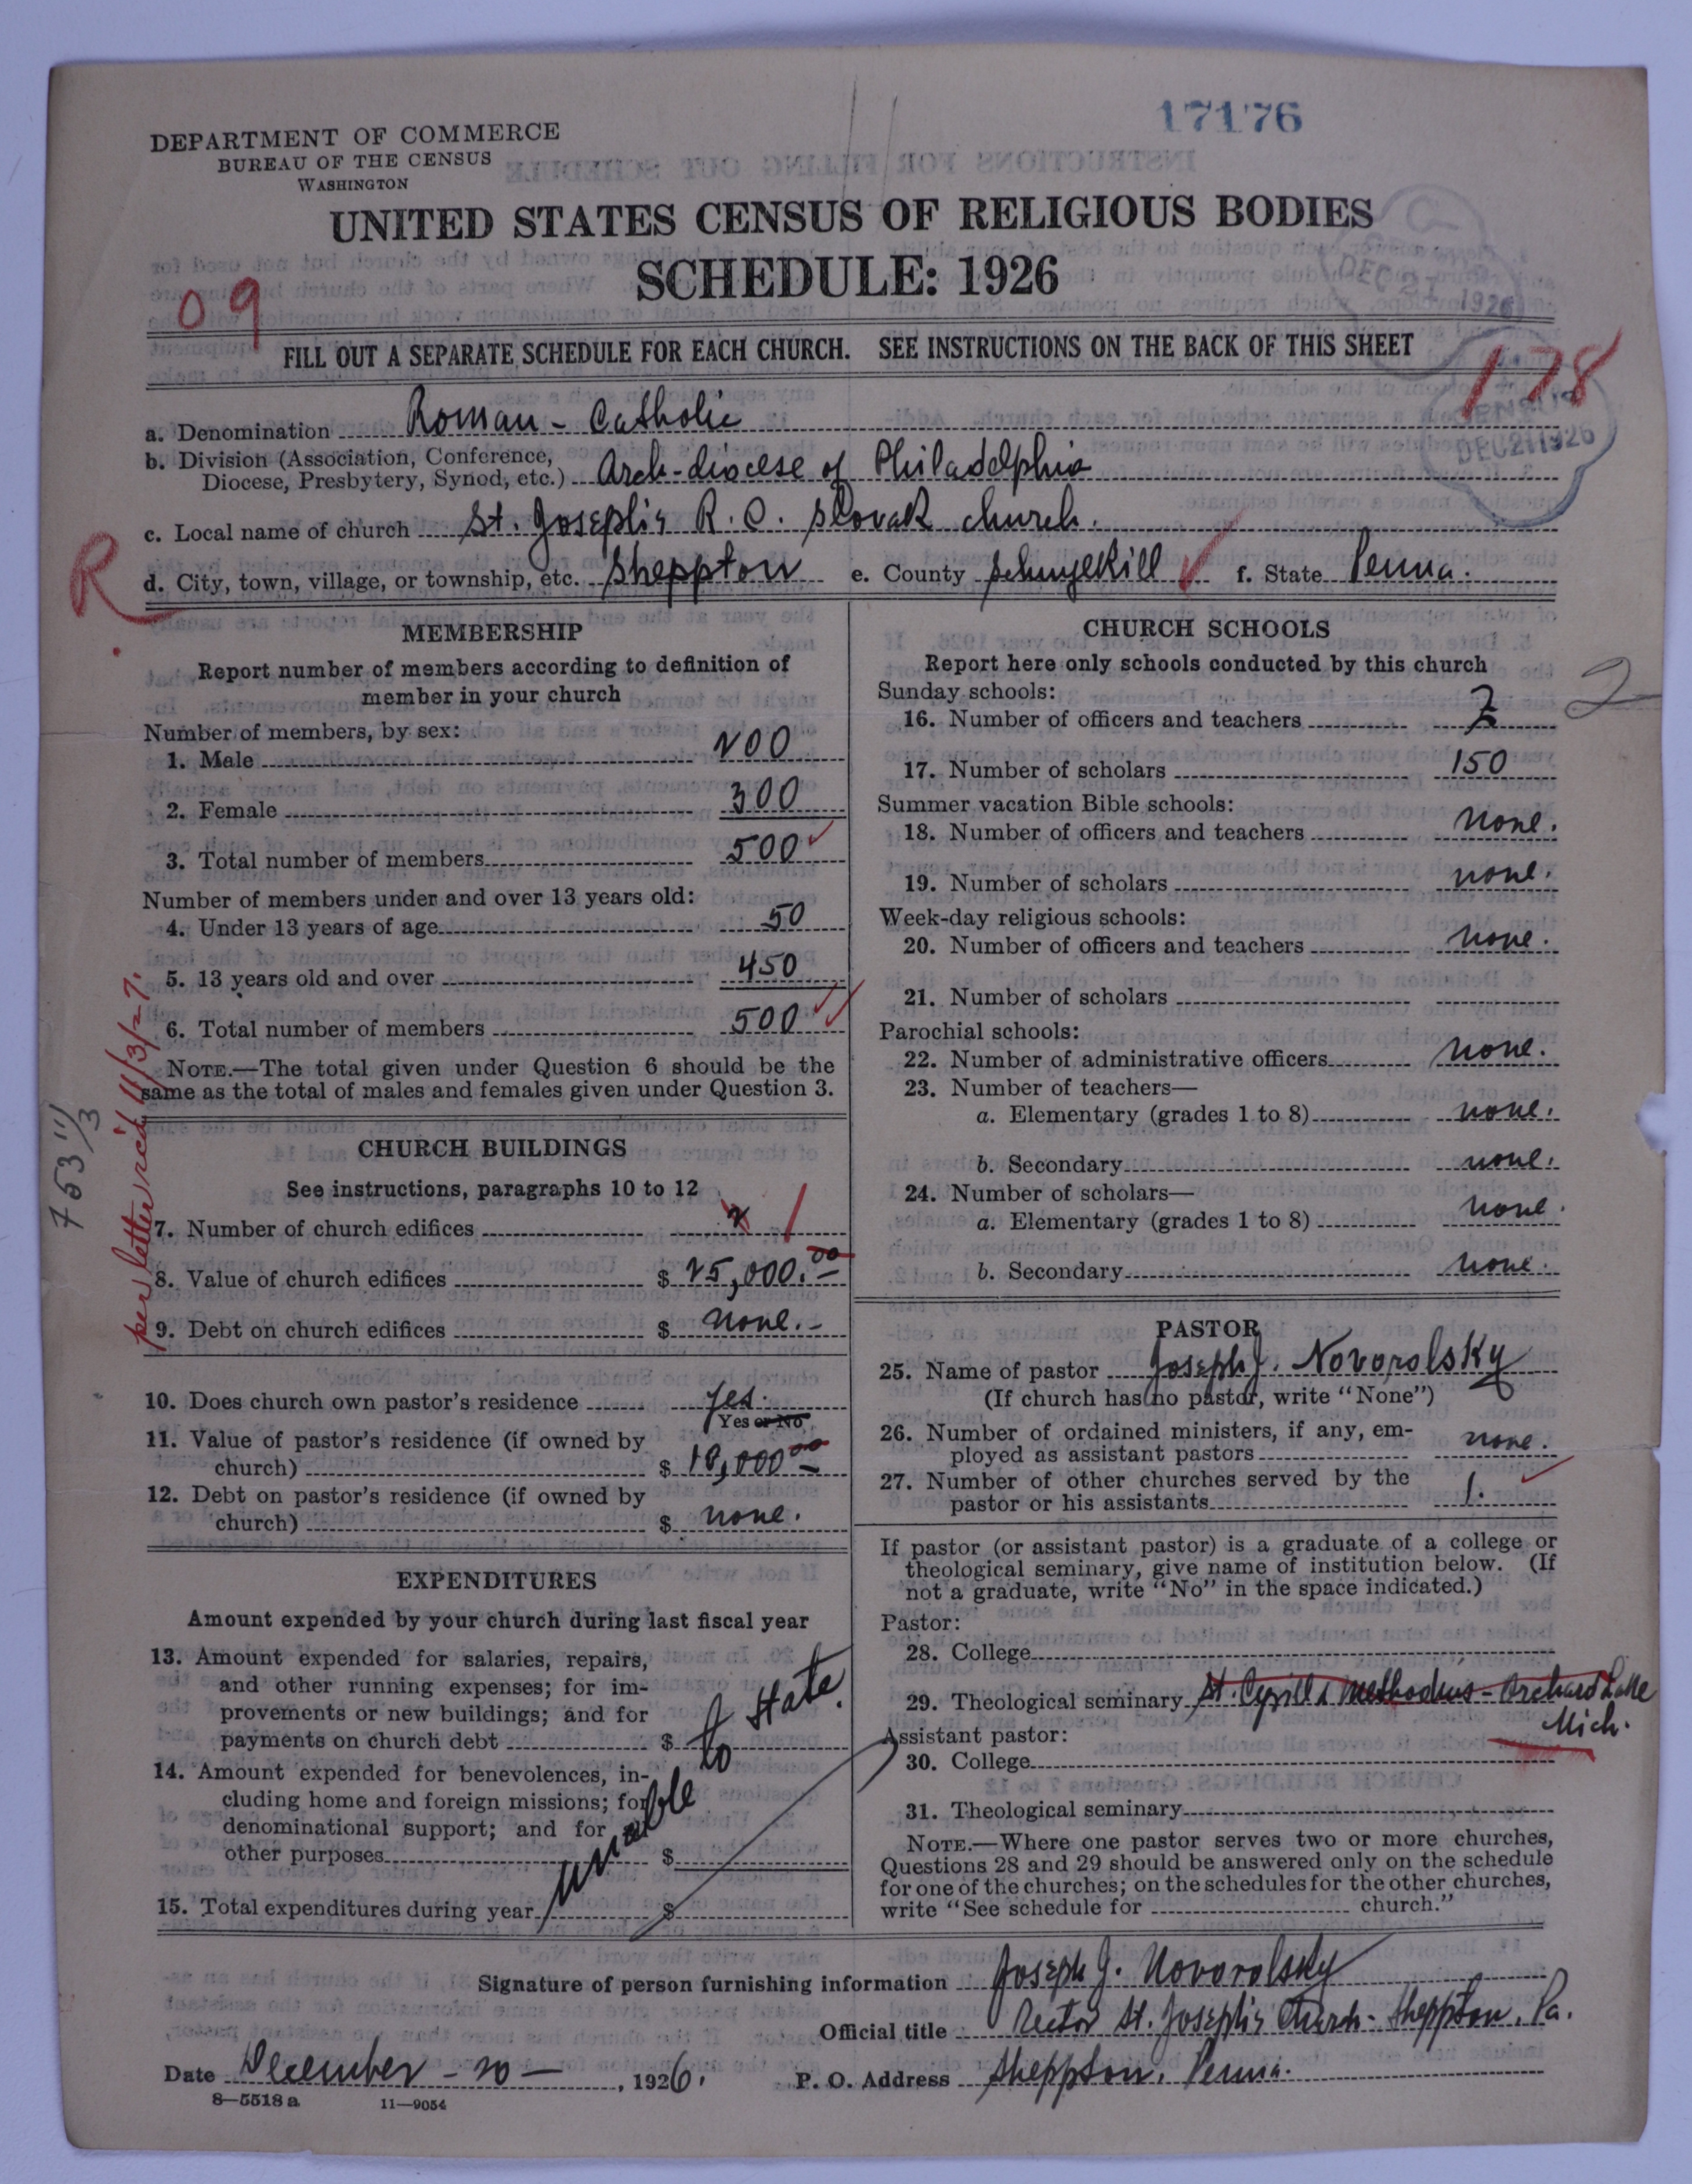 17176
DEPARTMENT OF COMMERCE
BUREAU OF THE CENSUS
WASHINGTON
UNITED STATES CENSUS OF RELIGIOUS BODIES
SCHEDULE: 1926
DEC 21 1926
09
FILL OUT A SEPARATE SCHEDULE FOR EACH CHURCH. SEE INSTRUCTIONS ON THE BACK OF THIS SHEET
178
CENSUS
DEC 21 1926
a. Denomination Roman - Catholic
b. Division (Association, Conference,
Diocese, Presbytery, Synod, etc.) Arch-diocese of Philadelphia
c. Local name of church St. Joseph's R. C. Slovak church.
R
d. City, town, village, or township, etc. Sheppton e. County Schuylkill f. State Penna.
MEMBERSHIP
Report number of members according to definition of
member in your church
Number of members, by sex:
1. Male 200
2. Female 300
3. Total number of members 500
Number of members under and over 13 years old:
4. Under 13 years of age 50
5. 13 years old and over 450
6. Total number of members 500
NOTE.—The total given under Question 6 should be the
same as the total of males and females given under Question 3.
per letter rec'd 11/3/27.
753 11/3
CHURCH BUILDINGS
See instructions, paragraphs 10 to 12
7. Number of church edifices 2 1
8. Value of church edifices $ 25,000.00
9. Debt on church edifices $ none.-
10. Does church own pastor's residence yes.
Yes or No
11. Value of pastor's residence (if owned by
church) $ 10,000 00
12. Debt on pastor's residence (if owned by
church) $ none.
EXPENDITURES
Amount expended by your church during last fiscal year
13. Amount expended for salaries, repairs,
and other running expenses; for im-
provements or new buildings; and for
payments on church debt $
14. Amount expended for benevolences, in-
cluding home and foreign missions; for
denominational support; and for
other purposes $
15. Total expenditures during year $
unable to state.
CHURCH SCHOOLS
Report here only schools conducted by this church
Sunday schools:
16. Number of officers and teachers 2 2
17. Number of scholars 150
Summer vacation Bible schools:
18. Number of officers and teachers none.
19. Number of scholars none.
Week-day religious schools:
20. Number of officers and teachers none.
21. Number of scholars
Parochial schools:
22. Number of administrative officers none.
23. Number of teachers—
a. Elementary (grades 1 to 8) none.
b. Secondary none.
24. Number of scholars—
a. Elementary (grades 1 to 8) none.
b. Secondary none.
PASTOR
25. Name of pastor Joseph J. Novorolsky
(If church has no pastor, write "None")
26. Number of ordained ministers, if any, em-
ployed as assistant pastors none.
27. Number of other churches served by the
pastor or his assistants 1.
If pastor (or assistant pastor) is a graduate of a college or
theological seminary, give name of institution below. (If
not a graduate, write "No" in the space indicated.)
Pastor:
28. College
29. Theological seminary St. Cyrill & Methodius - Orchard Lake
Mich.
Assistant pastor:
30. College
31. Theological seminary
NOTE.—Where one pastor serves two or more churches,
Questions 28 and 29 should be answered only on the schedule
for one of the churches; on the schedules for the other churches,
write "See schedule for church."
Signature of person furnishing information Joseph J. Novorolsky
Official title Rector St. Joseph's Church - Sheppton, Pa.
Date December - 20 - , 1926. P. O. Address Sheppton, Penna.
8—5518 a 11—9054